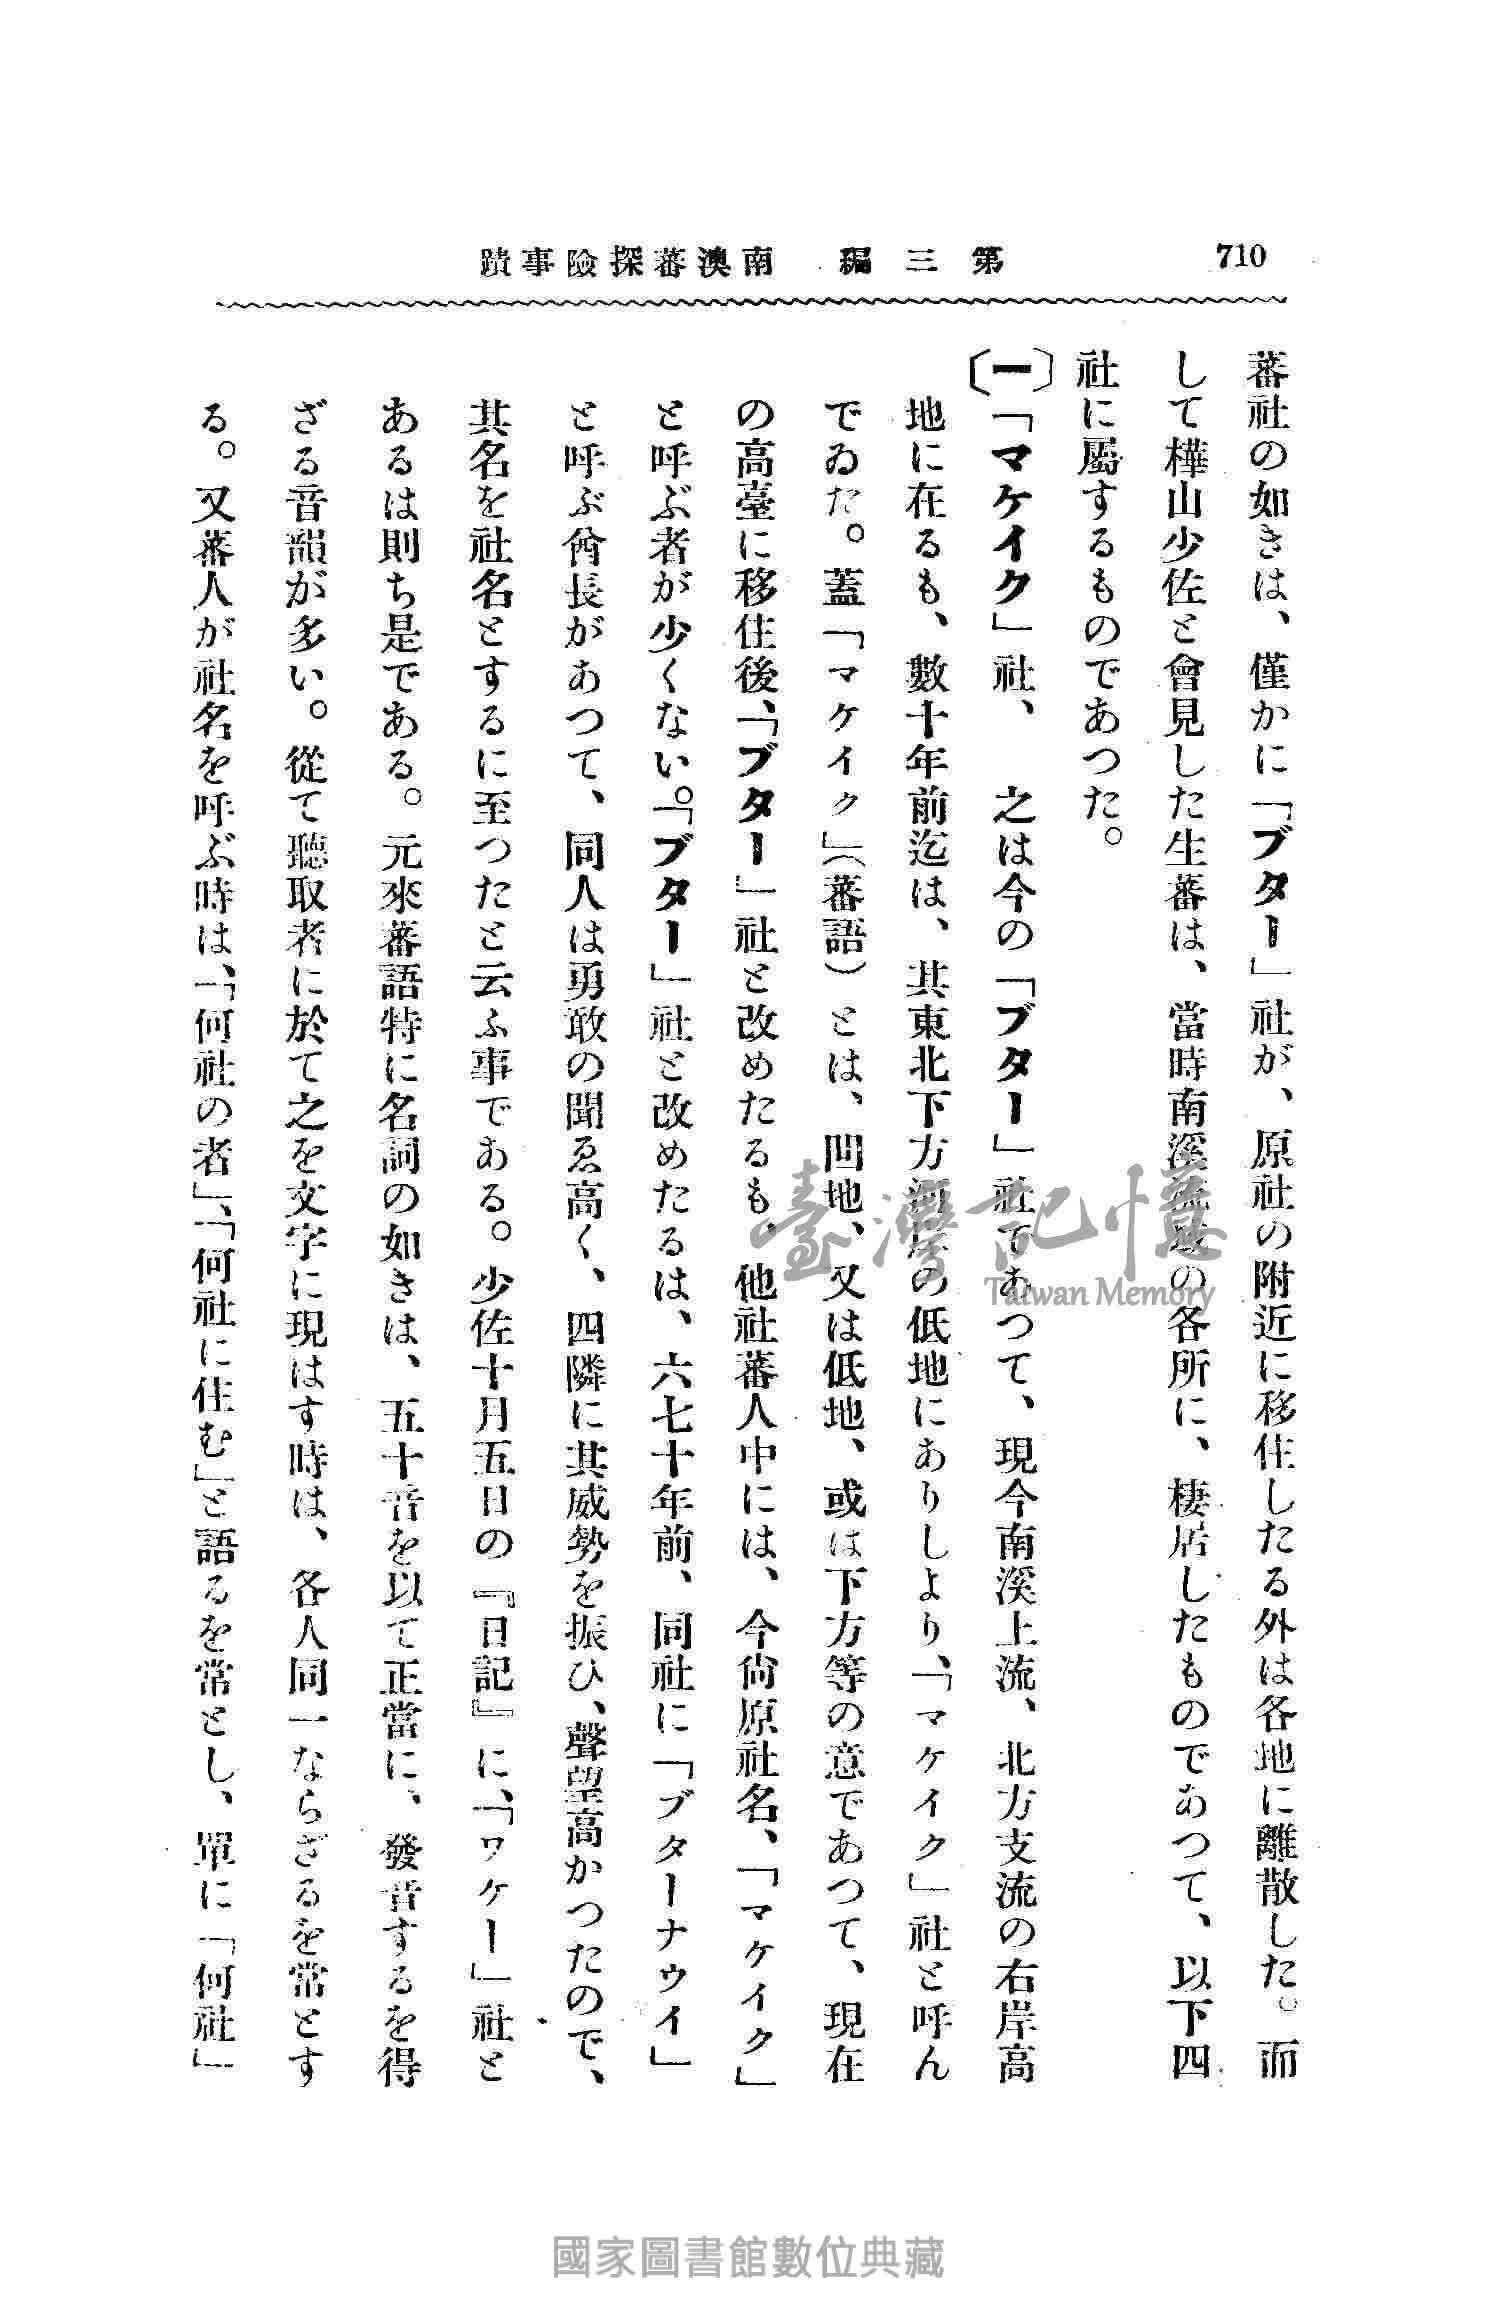 710
第三編　南澳蕃探險事蹟
蕃社の如きは、僅かに「ブター」社が、原社の附近に移住したる外は各地に離散した。而
して樺山少佐と會見した生蕃は、當時南溪流域の各所に、棲居したものであつて、以下四
社に屬するものであつた。
〔一〕「マケイク」社、　之は今の「ブター」社であつて、現今南溪上流、北方支流の右岸高
地に在るも、數十年前迄は、其東北下方河岸の低地にありしより、「マケイク」社と呼ん
でゐた。蓋「マケイク」（蕃語）とは、凹地、又は低地、或は下方等の意であつて、現在
の高臺に移住後、「ブター」社と改めたるも、他社蕃人中には、今尙原社名、「マケイク」
と呼ぶ者が少くない。「ブター」社と改めたるは、六七十年前、同社に「ブターナウイ」
と呼ぶ酋長があつて、同人は勇敢の聞ゑ高く、四隣に其威勢を振ひ、聲望高かつたので、
其名を社名とするに至つたと云ふ事である。少佐十月五日の『日記』に、「ワケー」社と
あるは則ち是である。元來蕃語特に名詞の如きは、五十音を以て正當に、發音するを得
ざる音韻が多い。從て聽取者に於て之を文字に現はす時は、各人同一ならざるを常とす
る。又蕃人が社名を呼ぶ時は、「何社の者」、「何社に住む」と語るを常とし、單に「何社」
臺灣記憶
Taiwan Memory
國家圖書館數位典藏